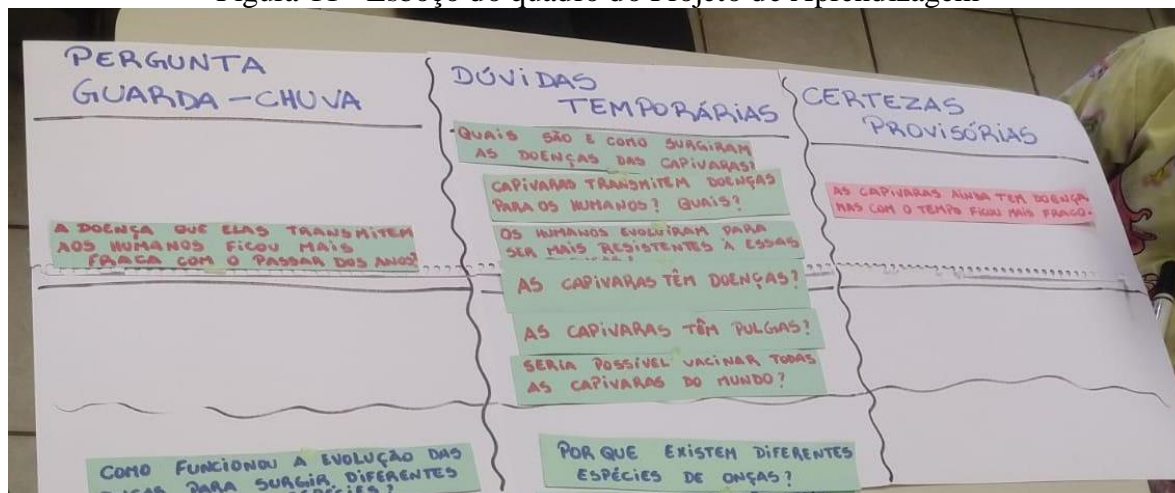 Figura 11 - Esboço do quadro do Projeto de Aprendizagem
PERGUNTA
GUARDA-CHUVA
A DOENÇA QUE ELAS TRANSMITEM
AOS HUMANOS FICOU MAIS
FRACA COM O PASSAR DOS ANOS?
COMO FUNCIONOU A EVOLUÇÃO DAS
PARA SURGIR DIFERENTES
ESPÉCIES?
DÚVIDAS
TEMPORÁRIAS
QUAIS SÃO E COMO SURGIRAM
AS DOENÇAS DAS CAPIVARAS?
CAPIVARAS TRANSMITEM DOENÇAS
PARA OS HUMANOS? QUAIS?
OS HUMANOS EVOLUIRAM PARA
SER MAIS RESISTENTES À ESSAS
AS CAPIVARAS TÊM DOENÇAS?
AS CAPIVARAS TÊM PULGAS?
SERIA POSSÍVEL VACINAR TODAS
AS CAPIVARAS DO MUNDO?
POR QUE EXISTEM DIFERENTES
ESPÉCIES DE ONÇAS?
CERTEZAS
PROVISÓRIAS
AS CAPIVARAS AINDA TEM DOENÇA,
MAS COM O TEMPO FICOU MAIS FRACO.